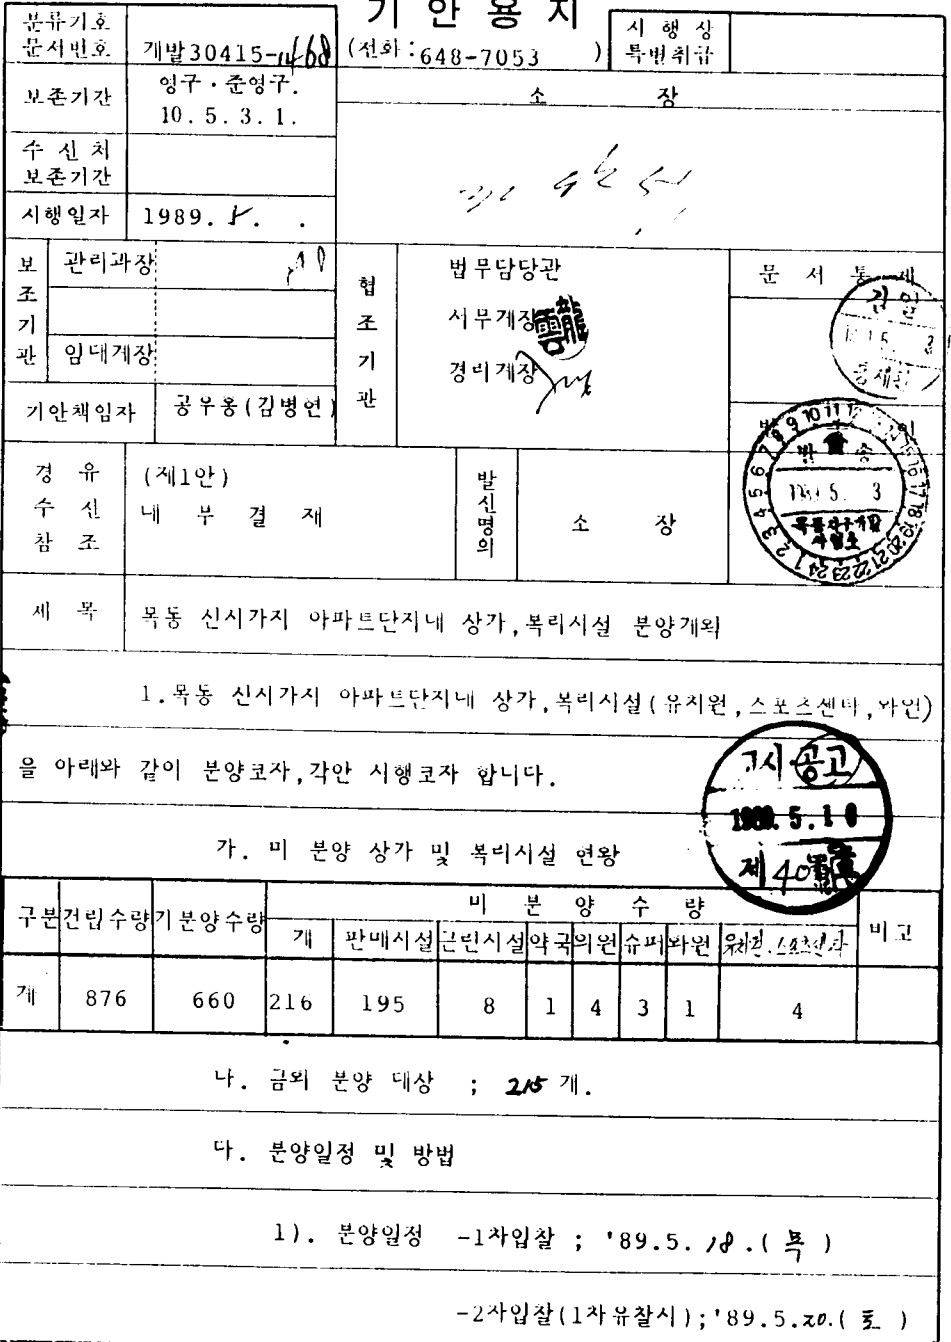 기 안 용 지
분류기호
문서번호
개발30415-1468
(전화:648-7053 )
시 행 상
특별취급
보존기간
영구·준영구.
10. 5. 3. 1.
소 장
수 신 처
보존기간
시행일자
1989. 5. .
보조기관
관리과장
임대계장
협조기관
법무담당관
서무계장
경리계장
문 서 통 제
기안책임자
공우옹(김병연)
경 유
수 신
참 조
(제1안)
내 부 결 재
발신명의
소 장
발 송
1989. 5. 3
제 목
목동 신시가지 아파트단지내 상가,복리시설 분양계획
1.목동 신시가지 아파트단지내 상가,복리시설(유치원,스포츠센타,의원)
을 아래와 같이 분양코자,각안 시행코자 합니다.
고시·공고
1989. 5. 10
제 40
가. 미 분양 상가 및 복리시설 현황
구분 건립수량 기분양수량 미 분 양 수 량 비고
계 판매시설 근린시설 약국 의원 슈퍼 의원 유치원·스포츠센타
계 876 660 216 195 8 1 4 3 1 4
나. 금회 분양 대상 ; 215 개.
다. 분양일정 및 방법
1). 분양일정 -1차입찰 ; '89.5. 18.( 목 )
-2차입찰(1차유찰시);'89.5.20.( 토 )